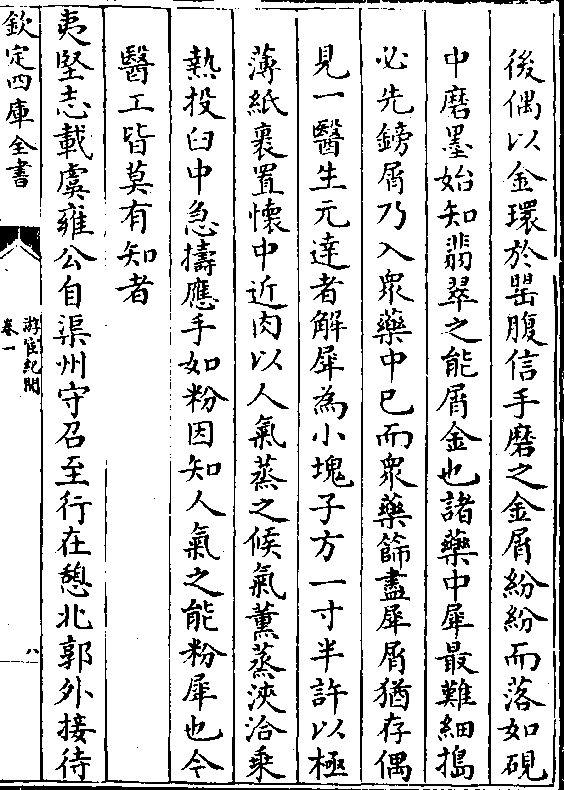 後偶以金環於罌腹信手磨之金屑紛紛而落如硯
中磨墨始知翡翠之能屑金也諸藥中犀最難細搗
必先鎊屑乃入衆藥中已而衆藥篩盡犀屑猶存偶
見一醫生元達者解犀為小塊子方一寸半許以極
薄紙裹置懷中近肉以人氣蒸之候氣薰蒸浹洽乗
熱投臼中急擣應手如粉因知人氣之能粉犀也今
醫工皆莫有知者
夷堅志載虞雍公自渠州守召至行在憩北郭外接待
欽定四庫全書
游宦紀聞
卷一
八